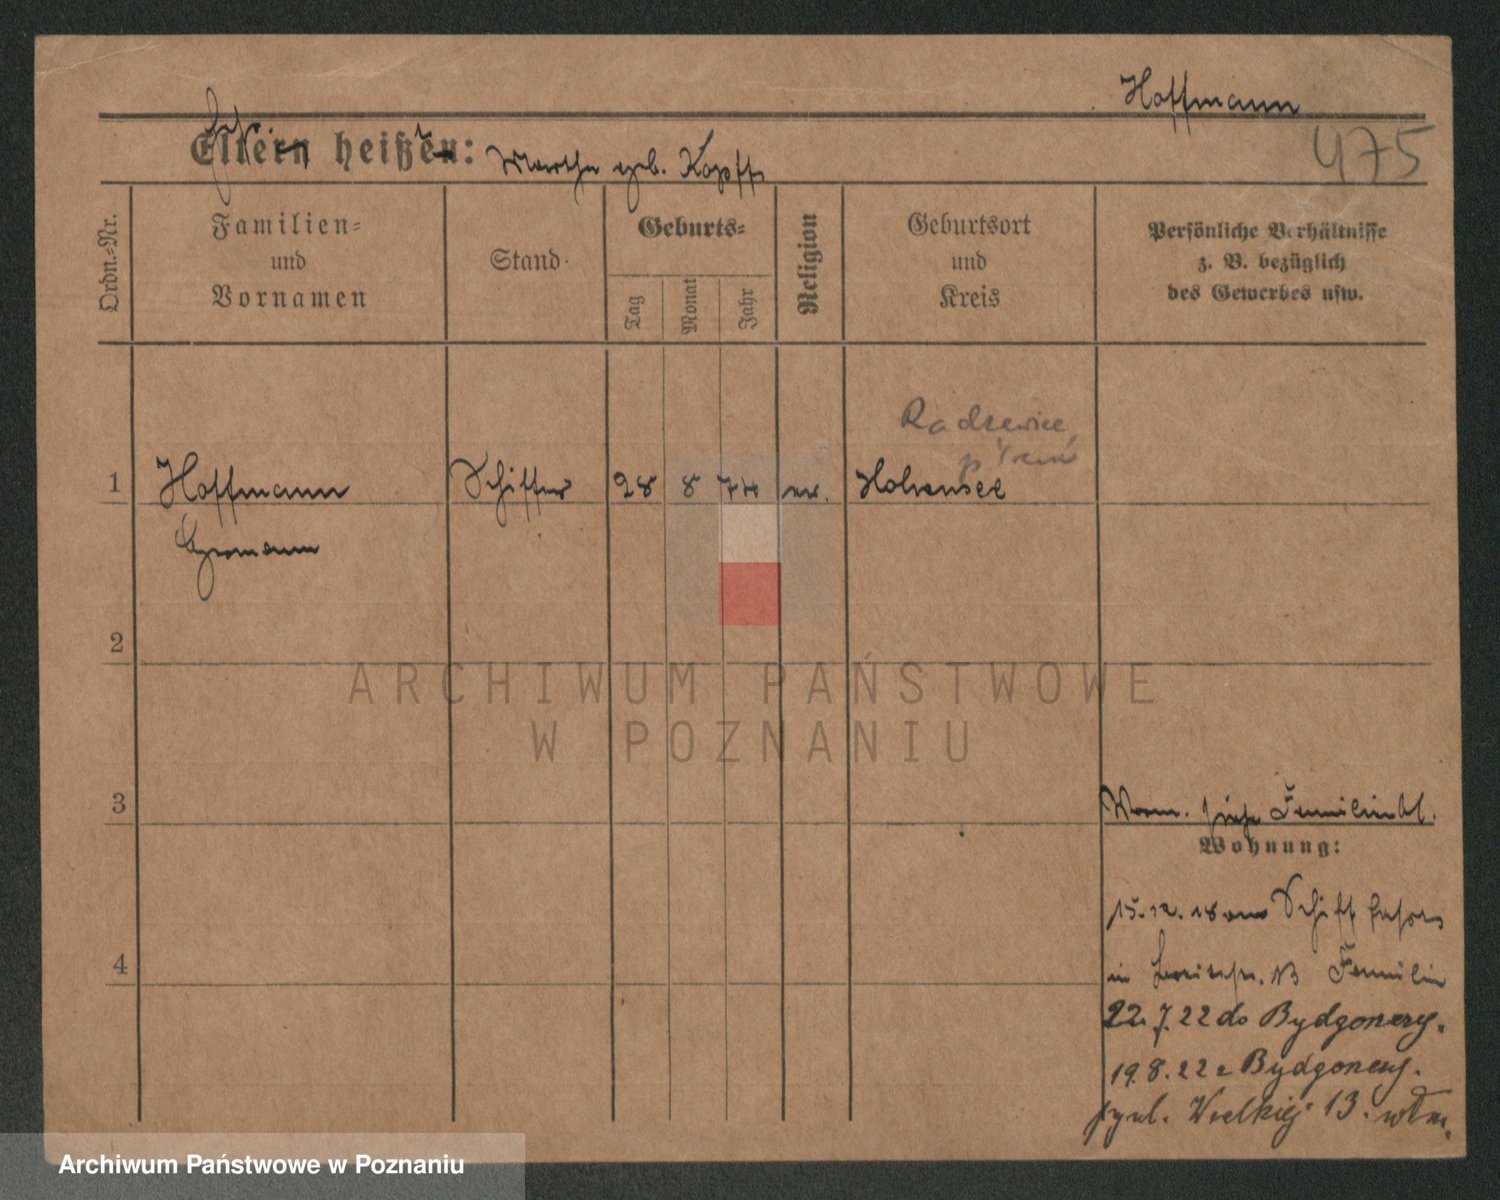 Hoffmann
475
Eltern heißen: Martha geb. Kopff
Ordn.-Nr.
Familien-
und
Vornamen
Stand
Geburts-
Tag
Monat
Jahr
Religion
Geburtsort
und
Kreis
Persönliche Verhältnisse
z. B. bezüglich
des Gewerbes usw.
Radzewice
p
1 Hoffmann Schiffer 28 8 74 ev. Hohensee
Hermann
2
ARCHIWUM PAŃSTWOWE
W POZNANIU
3
siehe Familienbl.
Wohnung:
15.12.18 Schiff
4
in 13 Familie
22.7.22 do Bydgoszczy.
19.8.22 z Bydgoszczy.
przy ul. Wielkiej 13.
Archiwum Państwowe w Poznaniu